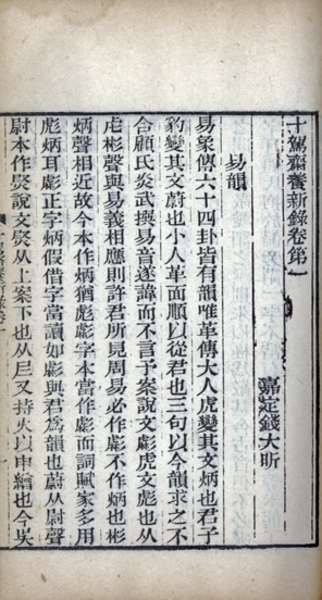 十駕齋養新錄卷第一
嘉定錢大昕
易韻
易象傳六十四卦皆有韻唯革傳大人虎變其文炳也君子
豹變其文蔚也小人革面順以從君也三句以今韻求之不
合顧氏炎武撰易音遂諱而不言予案說文彪虎文彪也从
虍彬聲與易義相應則許君所見周易必作彪不作炳也彬
炳聲相近故今本作炳猶彪彪字本當作彪而詞賦家多用
彪炳耳彪正字炳假借字當讀如彪與君為韻也蔚从尉聲
尉本作㷉說文㷉从上案下也从𡰥又持火以申繒也今吳